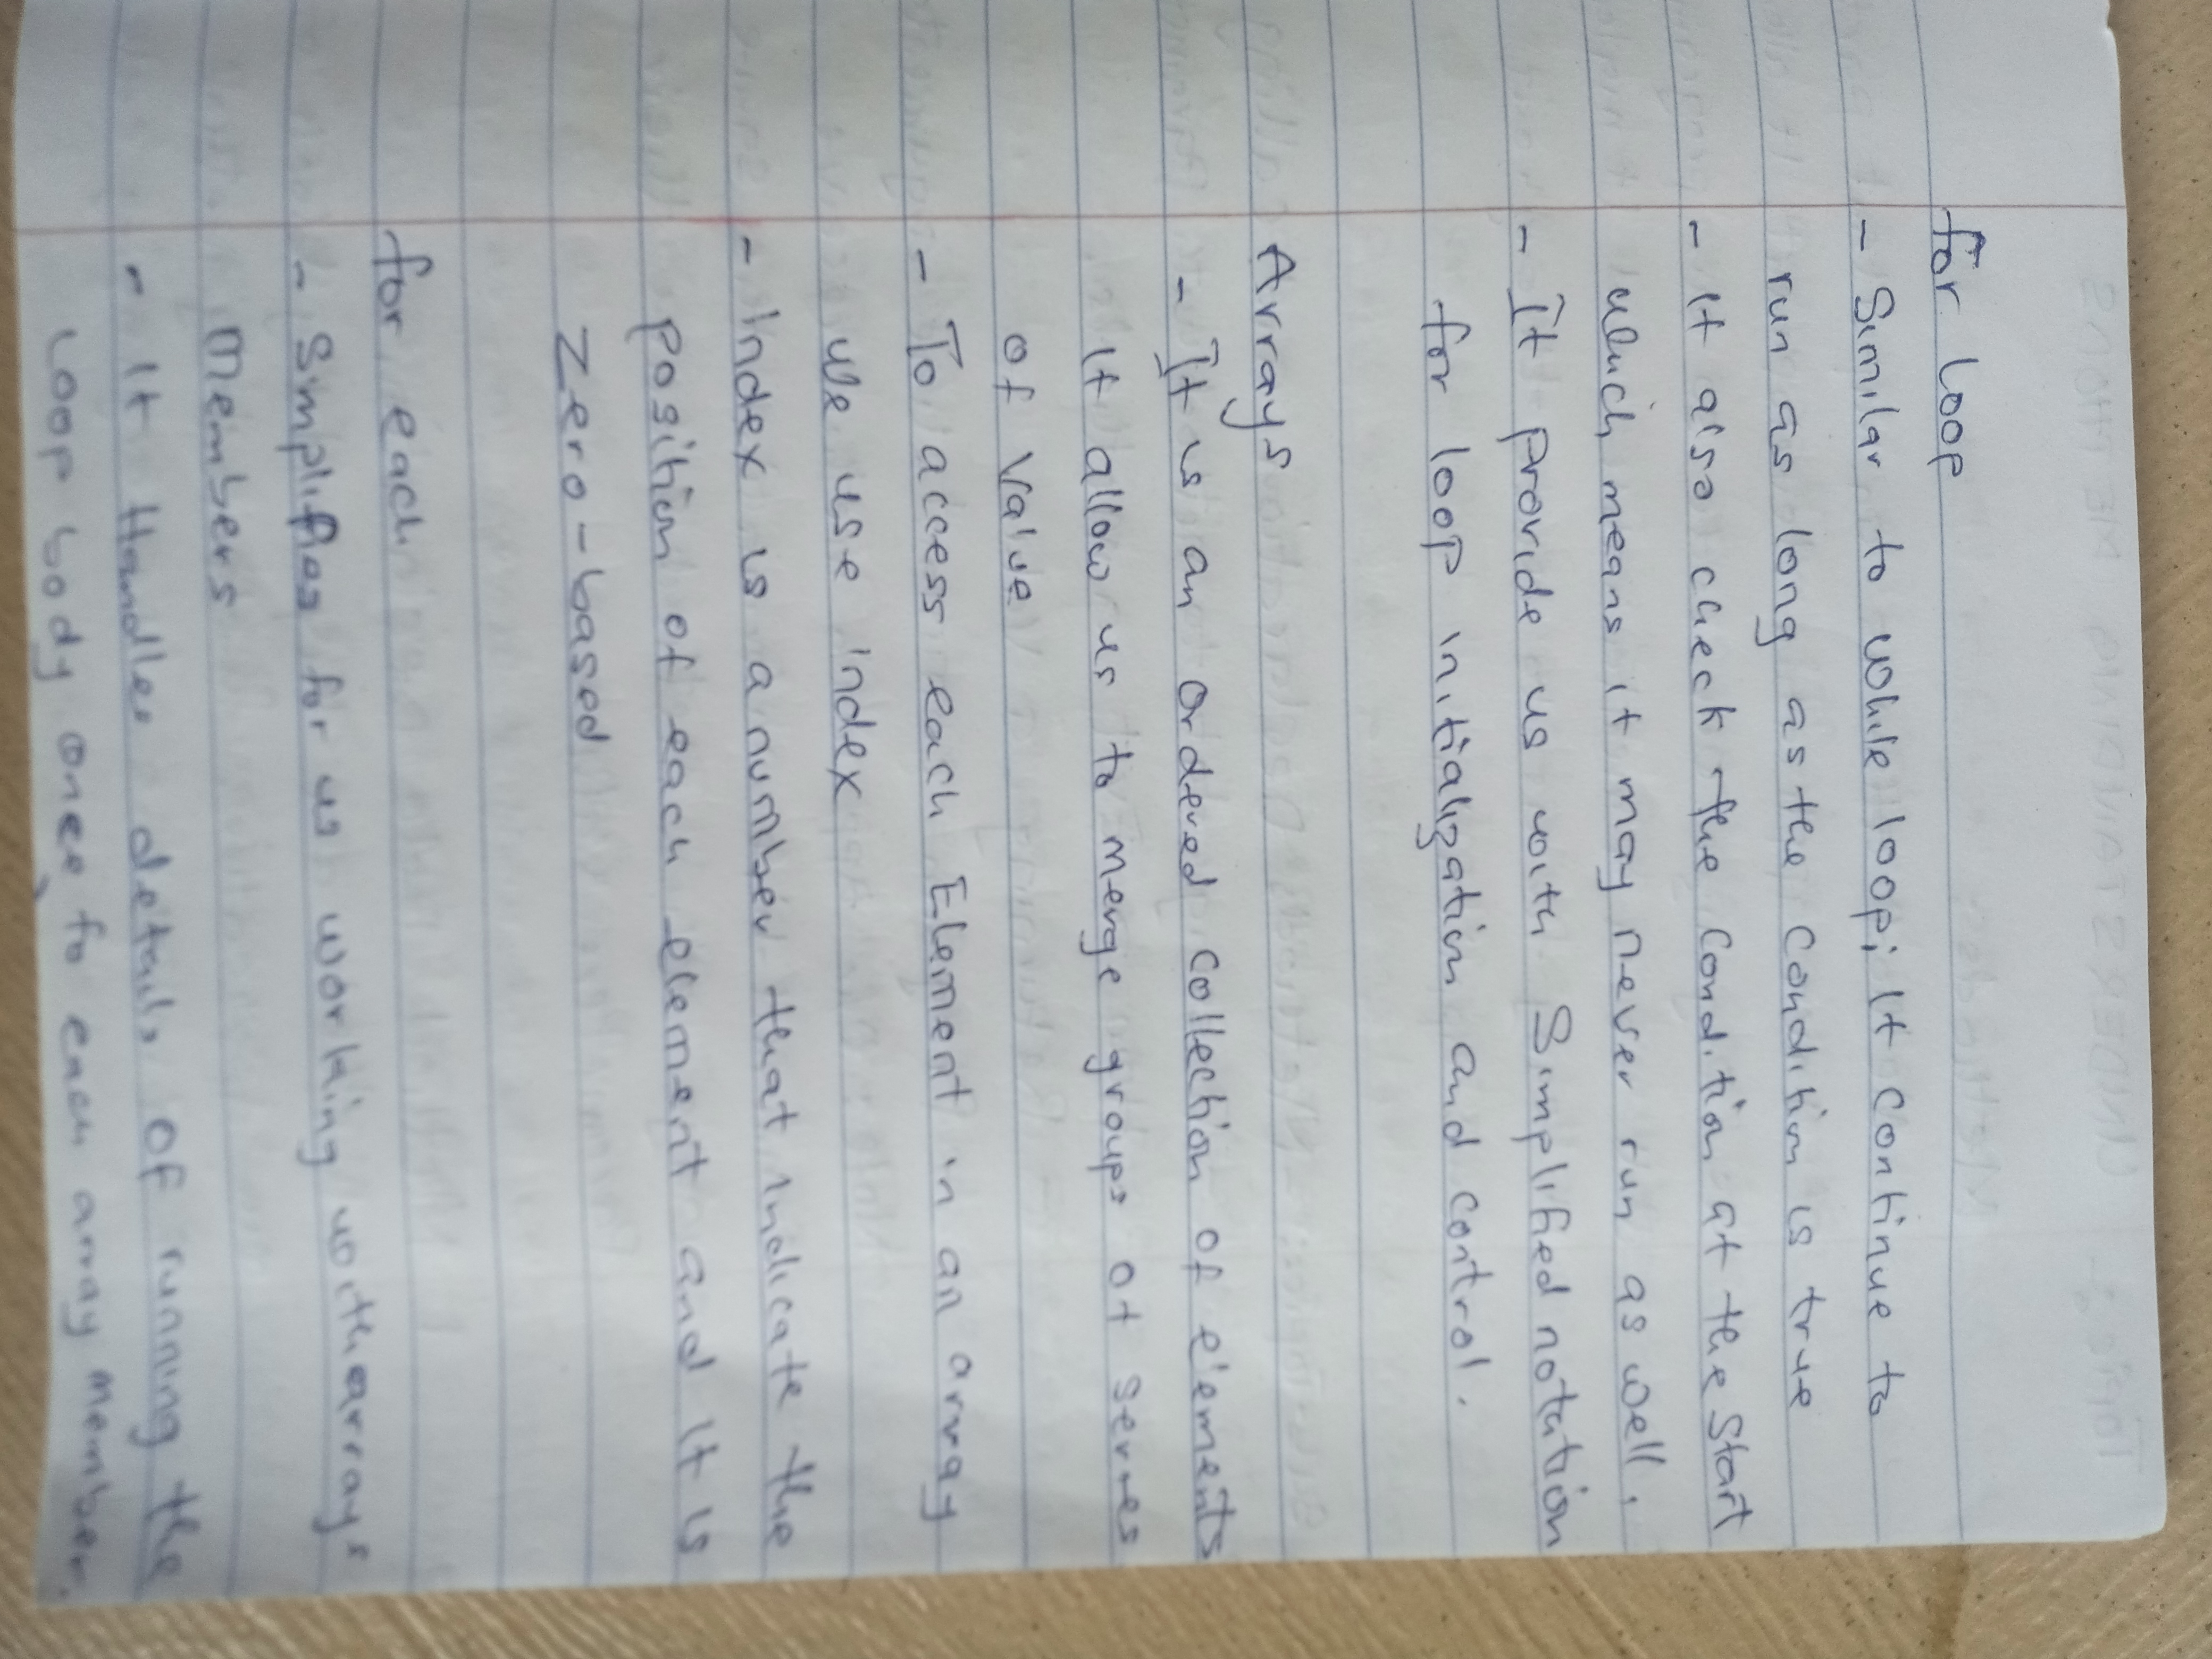 for loop
- Similar to while loop; it continue to
run as long as the condition is true
- It also check the condition at the start
which means it may never run as well.
- It provide us with simplified notation
for loop initialization and control.
Arrays
- It is an ordered collection of elements
it allow us to merge groups of series
of value
- To access each Element in an array
we use index
- Index is a number that indicate the
position of each element and it is
zero-based
for each
- Simplifies for us working with arrays
members
- It Handles details of running the
Loop body once for each array member.